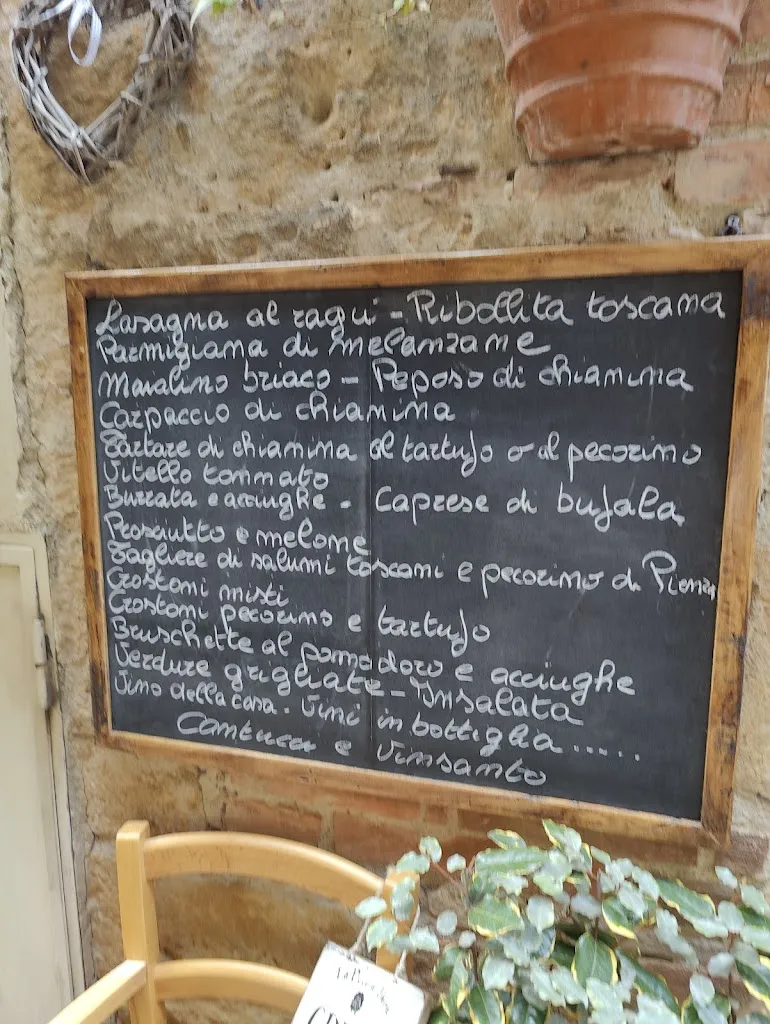 Lasagna al ragu' - Ribollita toscana
Parmigiana di melanzane
Maialino briaco - Peposo di chianina
Carpaccio di chianina
Tartare di chianina al tartufo o al pecorino
Vitello tonnato
Burrata e acciughe - Caprese di bufala
Prosciutto e melone
Tagliere di salumi toscani e pecorino di Pienza
Crostoni misti
Crostoni pecorino e tartufo
Bruschette al pomodoro e acciughe
Verdure grigliate - Insalata
Vino della casa - Vini in bottiglia ......
Cantucci e Vinsanto